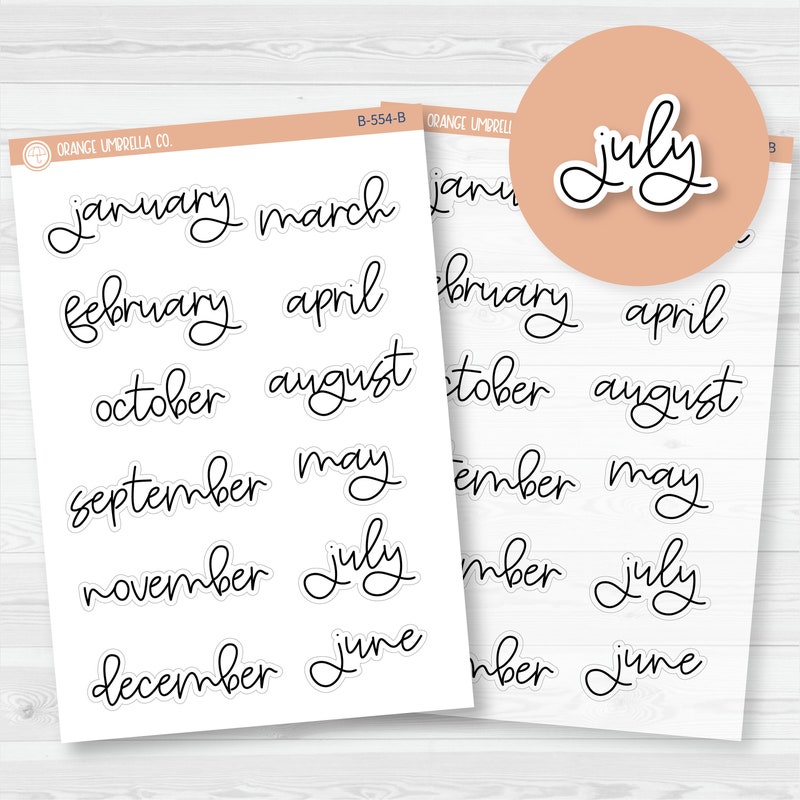 B-554-B
ORANGE UMBRELLA CO.
january march
february april
october august
september may
november july
december june
ORANGE UMBREL
B
janu
bruary april
ctober august
tember may
mber july
mber june
july